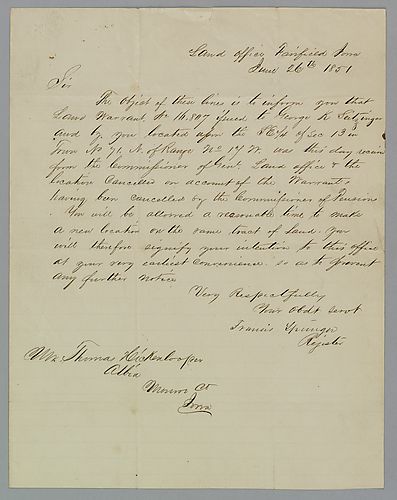 Land office, Fairfield Iowa
June 26th 1851
Sir
The object of these lines is to inform you that
Land Warrant, No 16,807 issued to George K
and by you located upon the SE/4 of Sec 13 in
Town No 71, N. of Range No 17 W. was this day
from the Commissioner of Genl Land office & the
location Cancelled on account of the Warrant
having been cancelled by the Commissioner of Pensions
You will be allowed a reasonable time to make
a new location on the same tract of Land. You
will therefore signify your intention to this office
at your very earliest convenience so as to prevent
any further notice
Very Respectfully
Your Obdt Servt
Francis Springer
Register
Mr. Thomas Hickenlooper
Albia
Monroe Ct
Iowa